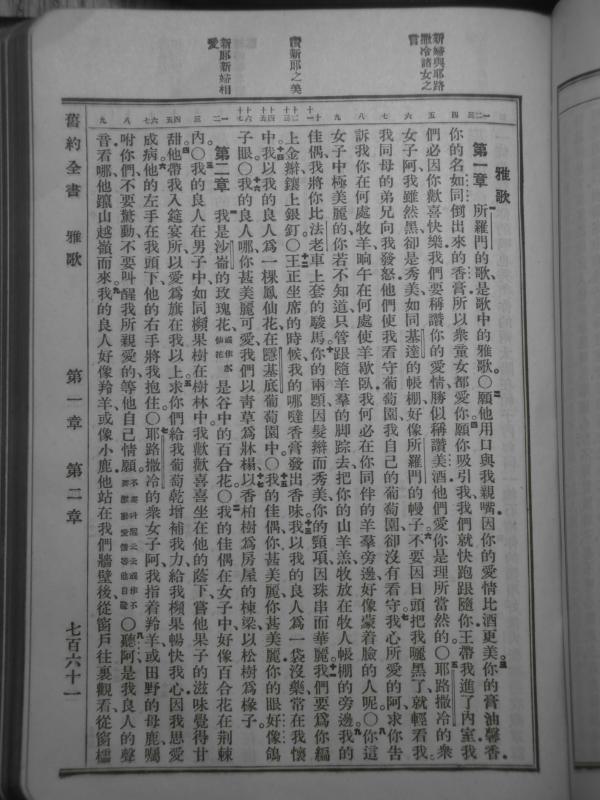 新婦與耶路
撒冷諸女之
言
讚新郎之美
新郎新婦相
愛
雅歌
第一章 所羅門的歌是歌中的雅歌〇願他用口與我親嘴因你的愛情比酒更美你的膏油馨香
你的名如同倒出來的香膏所以衆童女都愛你願你吸引我我們就快跑跟隨你王帶我進了內室我
們必因你歡喜快樂我們要稱讚你的愛情勝似稱讚美酒他們愛你是理所當然的〇耶路撒冷的衆
女子阿我雖然黑卻是秀美如同基達的帳棚好像所羅門的幔子不要因日頭把我曬黑了就輕看我
我同母的弟兄向我發怒他們使我看守葡萄園我自己的葡萄園卻沒有看守我心所愛的阿求你告
訴我你在何處牧羊晌午在何處使羊歇臥我何必在你同伴的羊羣旁邊好像蒙着臉的人呢〇你這
女子中極美麗的你若不知道只管跟隨羊羣的脚踪去把你的山羊羔牧放在牧人帳棚的旁邊我的
佳偶我將你比法老車上套的駿馬你的兩顋因髮辮而秀美你的頸項因珠串而華麗我們要爲你編
上金辮鑲上銀釘〇王正坐席的時候我的哪噠香膏發出香味我以我的良人爲一袋沒藥常在我懷
中我以我的良人爲一棵鳳仙花在隱基底葡萄園中〇我的佳偶你甚美麗你甚美麗你的眼好像鴿
子眼〇我的良人哪你甚美麗可愛我們以青草爲牀榻以香柏樹爲房屋的棟梁以松樹爲椽子
第二章 我是沙崙的玫瑰花或作水仙花是谷中的百合花〇我的佳偶在女子中好像百合花在荆棘
內〇我的良人在男子中如同蘋果樹在樹林中我歡歡喜喜坐在他的蔭下嘗他果子的滋味覺得甘
甜他帶我入筵宴所以愛爲旗在我以上求你們給我葡萄乾增補我力給我蘋果暢快我心因我思愛
成病他的左手在我頭下他的右手將我抱住〇耶路撒冷的衆女子阿我指着羚羊或田野的母鹿囑
咐你們不要驚動不要叫醒我所親愛的等他自己情願〇聽阿是我良人的聲
音看哪他躥山越嶺而來我的良人好像羚羊或像小鹿他站在我們牆壁後從窗戶往裏觀看從窗櫺
舊約全書 雅歌 第一章 第二章 七百六十一